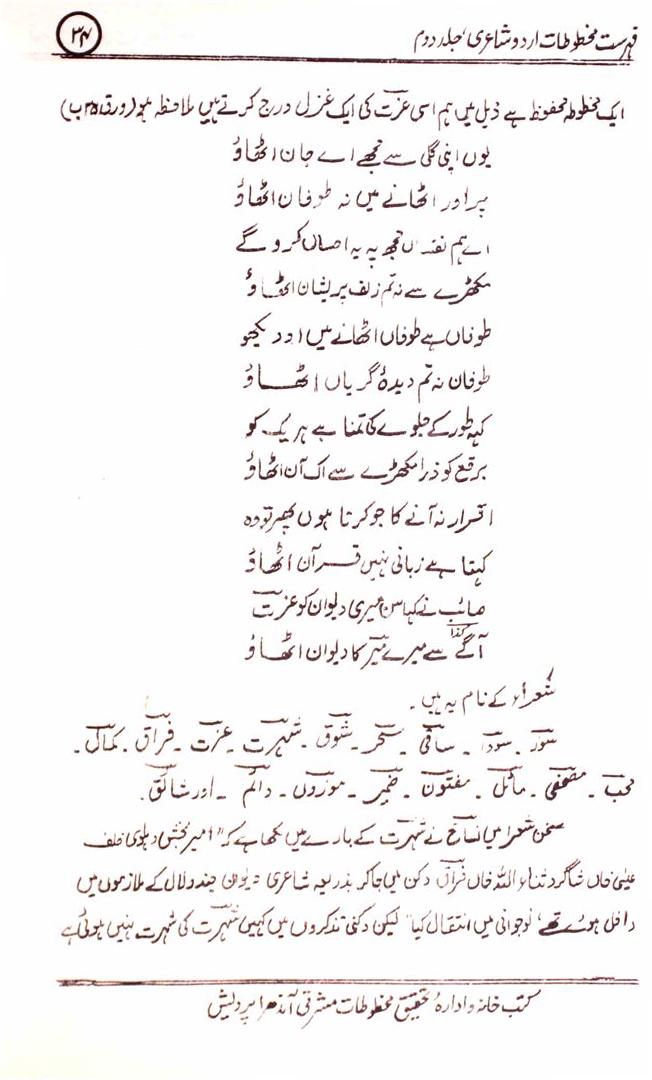 فہرست مخطوطات اردو شاعری، جلد دوم
۳۴
ایک مخطوطہ محفوظ ہے ذیل میں ہم اسی عزت کی ایک غزل درج کرتے ہیں ملاحظہ ہو (ورق ۳۵ ب)
یوں اپنی گلی سے مجھے اے جان اٹھاؤ
پر اور اٹھانے میں نہ طوفان اٹھاؤ
اے ہم نفساں مجھ پہ یہ احساں کرو گے
مکھڑے سے نہ تم زلف پریشان اٹھاؤ
طوفاں ہے طوفاں اٹھانے میں اور دیکھو
طوفان نہ تم دیدۂ گریاں اٹھاؤ
کہہ طور کے جلوے کا تمنا ہے ہر یک کو
برقع کو ذرا مکھڑے سے اک آن اٹھاؤ
اقرار نہ آنے کا جو کرتا ہوں پھر تو وہ
کہتا ہے زبانی نہیں قرآن اٹھاؤ
صائب نے کہا سن میری دیوان کو عزت
آگے کذا سے میرے میر کا دیوان اٹھاؤ
شعراء کے نام یہ ہیں ۔
سوز ۔ سودا ۔ ساقی ۔ سحر ۔ شوق ۔ شہرت ۔ عزت ۔ فراق ۔ کمالی ۔
محب ۔ مصحفی ۔ مائل ۔ مفتون ۔ ضمیر ۔ موزوں ۔ دائم ۔ اور شائق ۔
سخن شعرا میں نساخ نے شہرت کے بارے میں لکھا ہے کہ "امیر بخش دہلوی خلف
عیسیٰ خاں شاگرد ثناء اللہ خاں فراق دکن میں جا کر بذریعہ شاعری دیوان چندولال کے ملازموں میں
داخل ہوئے تھے، نوجوانی میں انتقال کیا" لیکن دکنی تذکروں میں کہیں شہرت کی شہرت نہیں ہوئی ہے
کتب خانہ و ادارہ تحقیق مخطوطات مشرقی آندھرا پردیش